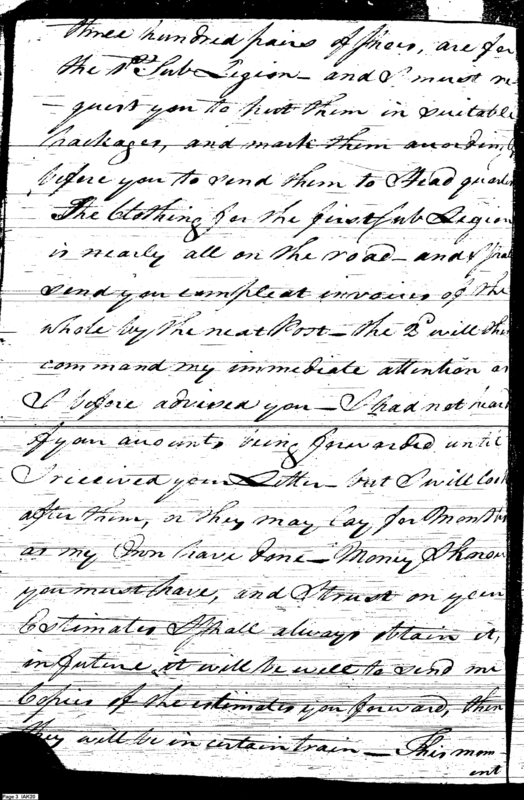 three hundred pairs of Shoes, are for
the 1st. Sub Legion – and I must re-
quest you to put them in suitable
packages, and mark them according
before you to send them to Head quarte
The Clothing for the first Sub Legion
is nearly all on the road – and I shal
send you compleat invoices of the
whole by the next Post – the 2d will then
command my immediate attention as
I before advised you – I had not heard
of your accounts being forwarded until
I received your Letter – but I will look
after them, or they may lay for Months
as my Own have done – Money I know
you must have, and I trust on your
Estimates I shall always obtain it,
in future it will be well to send me
Copies of the estimates you forward, then
they will be in certain train – This mom-
ent
Page 3 IAK35